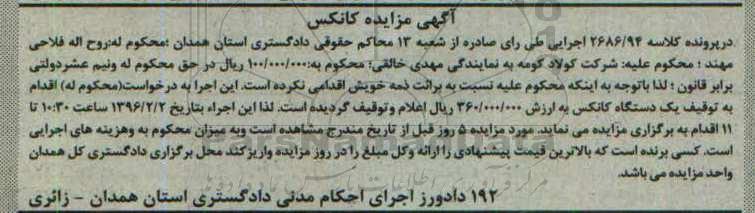 آگهی مزایده کانکس
درپرونده کلاسه ۲۶۸۶/۹۴ اجرایی طی رای صادره از شعبه ۱۳ محاکم حقوقی دادگستری استان همدان ؛محکوم له:روح اله فلاحی
مهند ؛ محکوم علیه: شرکت کولاد کومه به نمایندگی مهدی خالقی؛ محکوم به:۱۰۰/۰۰۰/۰۰۰ ریال در حق محکوم له ونیم عشردولتی
برابر قانون ؛ لذا باتوجه به اینکه محکوم علیه نسبت به برائت ذمه خویش اقدامی نکرده است. این اجرا به درخواست(محکوم له) اقدام
به توقیف یک دستگاه کانکس به ارزش ۳۶۰/۰۰۰/۰۰۰ ریال اعلام وتوقیف گردیده است. لذا این اجراء بتاریخ ۱۳۹۶/۲/۲ ساعت ۱۰:۳۰ تا
۱۱ اقدام به برگزاری مزایده می نماید. مورد مزایده ۵ روز قبل از تاریخ مندرج مشاهده است وبه میزان محکوم به وهزینه های اجرایی
است. کسی برنده است که بالاترین قیمت پیشنهادی را ارائه وکل مبلغ را در روز مزایده واریز کند محل برگزاری دادگستری کل همدان
واحد مزایده می باشد.
۱۹۲ دادورز اجرای احکام مدنی دادگستری استان همدان - زائری